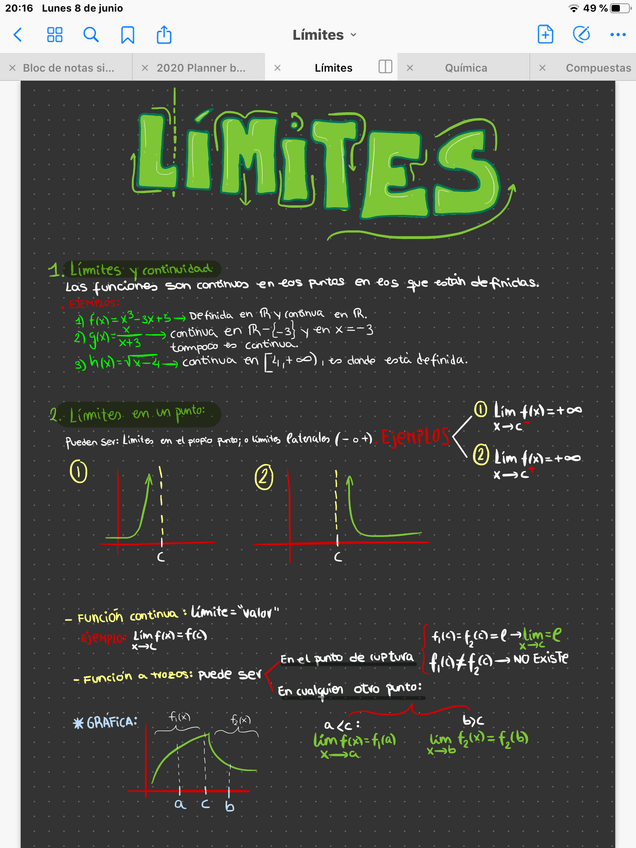 20:16 Lunes 8 de junio 49 %
Límites
× Bloc de notas si... × 2020 Planner b... × Límites × Química × Compuestas
LÍMITES
1. Límites y continuidad
Las funciones son continuas en los puntos en los que están definidas.
· EJEMPLOS:
1) f(x)=x³-3x+5 → Definida en ℝ y continua en ℝ.
2) g(x)= x/x+3 → continua en ℝ-{-3} y en x=-3
tampoco es continua.
3) h(x)=√x-4 → continua en [4,+∞), es donde está definida.
2. Límites en un punto:
Pueden ser: Límites en el propio punto; o límites laterales (- o +). EJEMPLOS
① Lim f(x)=+∞
x→c⁻
② Lim f(x)=+∞
x→c⁺
① ②
c c
- Función continua: Límite="valor"
·EJEMPLO: Lim f(x)=f(c)
x→c
- Función a trozos: puede ser
En el punto de ruptura
f₁(c)=f₂(c)=l → lim=l
x→c
f₁(c)≠f₂(c) → NO EXISTE
En cualquier otro punto:
a<c:
lim f(x)=f₁(a)
x→a
b>c
lim f₂(x)=f₂(b)
x→b
* GRÁFICA:
f₁(x) f₂(x)
a c b